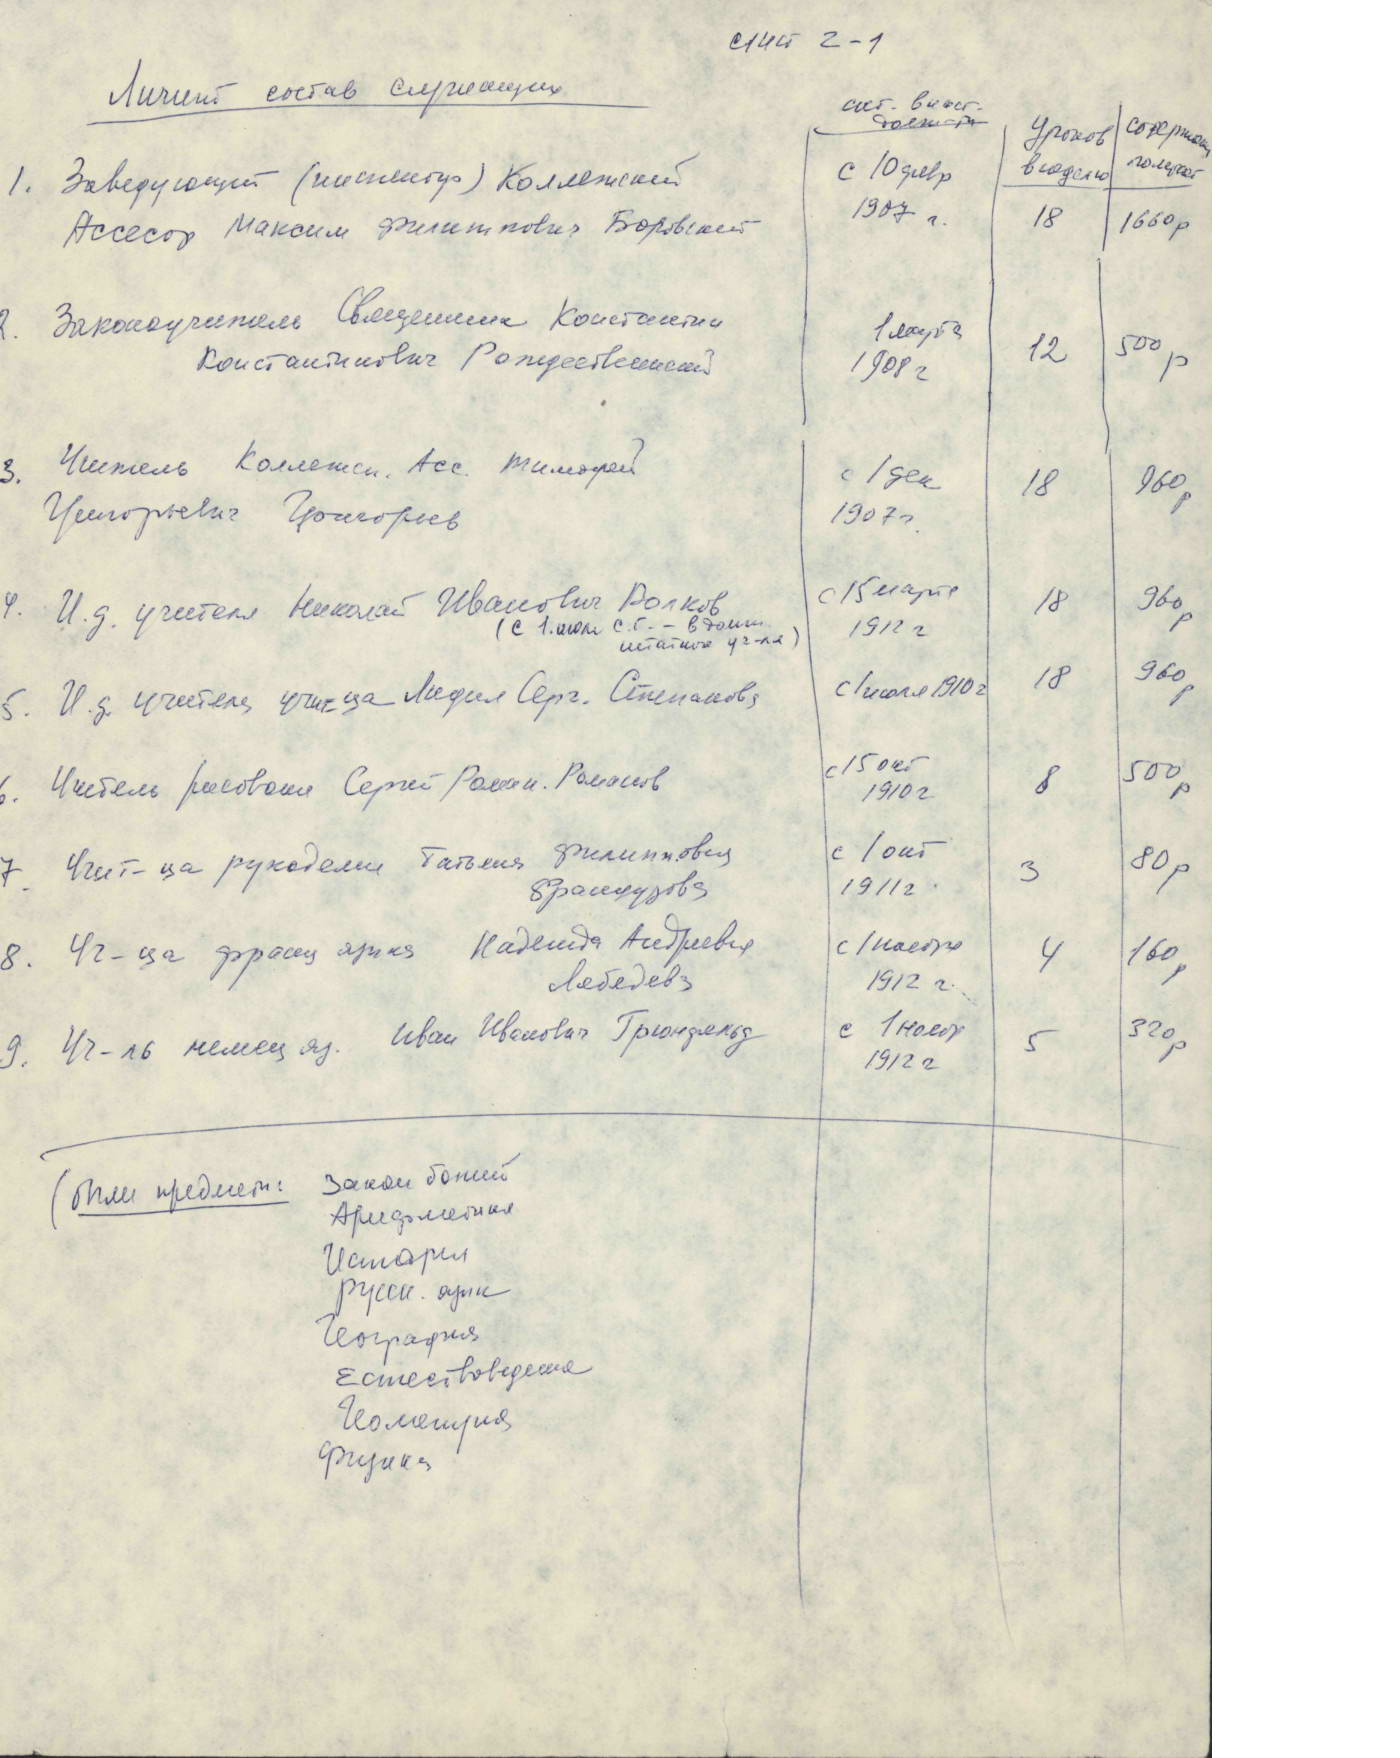 лист 2-1
Личный состав служащих
Уроков в неделю
1. Заведующий (инспектор) Коллежский
Ассесор Максим Филиппович Боровский
с 10 февр 1907 г. 18 1660 р
2. Законоучитель Священник Константин
Константинович Рождественский
1 марта 1908 г 12 500 р
3. Учитель Коллежск. Асс. Тимофей
Григорьевич Григорьев
с 1 дек 1907 г. 18 960 р
4. И.д. учителя Николай Иванович Волков
(с 1 июля с.г. – в долж. штатного уч-ля)
с 15 марта 1912 г 18 960 р
5. И.д. учителя учит-ца Лидия Серг. Степанова
с 1 июля 1910 г 18 960 р
6. Учитель рисования Сергей Роман. Романов
с 15 окт 1910 г 8 500 р
7. Учит-ца рукоделия Татьяна Филипповна
Французова
с 1 окт 1911 г. 3 80 р
8. Уч-ца франц языка Надежда Андреевна
Лебедева
с 1 ноября 1912 г. 4 160 р
9. Уч-ль немец яз. Иван Иванович Грюнфельд
с 1 ноябр 1912 г 5 320 р
(были предметы: Закон божий
Арифметика
История
Русск. язык
География
Естествоведение
Геометрия
Физика